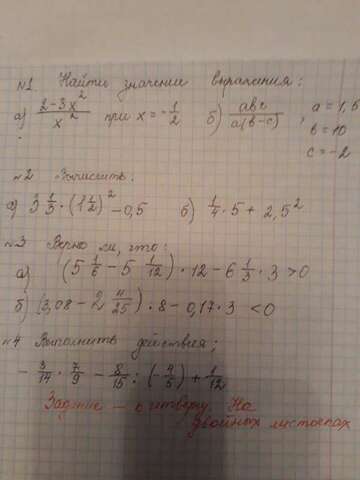 №1 Найти значение выражения:
а) (2-3x²)/x² при x = -1/2 б) abc/a(b-c), a = 1,5
b = 10
c = -2
№2 Вычислить:
а) 3 1/3 · (1 1/2)² - 0,5 б) 1/4 · 5 + 2,5²
№3 Верно ли, что:
а) (5 1/6 - 5 1/12) · 12 - 6 1/3 · 3 > 0
б) (3,08 - 2 4/25) · 8 - 0,17 · 3 < 0
№4 Выполнить действия;
- 3/14 · 7/9 - 8/15 : (-4/5) + 1/12
Задание - к четвергу. На
двойных листочках